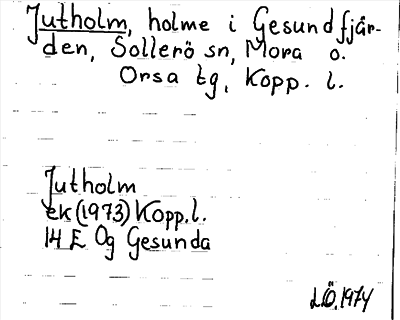 Jutholm, holme i Gesundfjär-
den, Sollerö sn, Mora o.
Orsa tg, Kopp. l.
Jutholm
ek (1973) Kopp.l.
14 E 0g Gesunda
LÖ. 1974